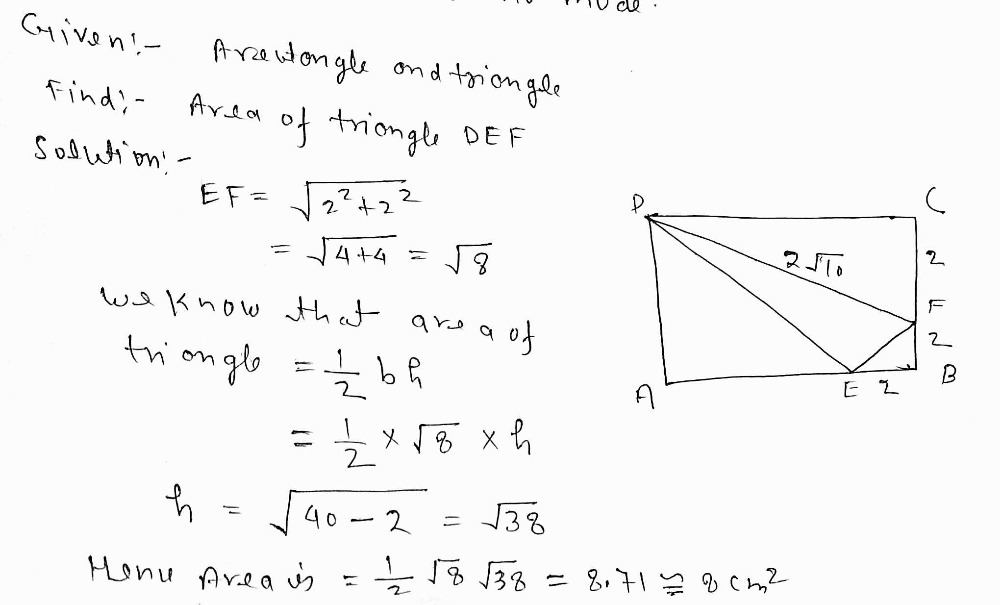 mode.
Given:-
A rectongle ond triongle
Find:-
Area of triongle DEF
Solution:-
EF = √2²+2²
= √4+4 = √8
we know that area of
triongle = 1/2 bh
= 1/2 × √8 × h
h = √40-2 = √38
Henu Area is = 1/2 √8 √38 = 8.71 ≅ 8 cm²
D
C
2√10
2
F
2
A
E
2
B